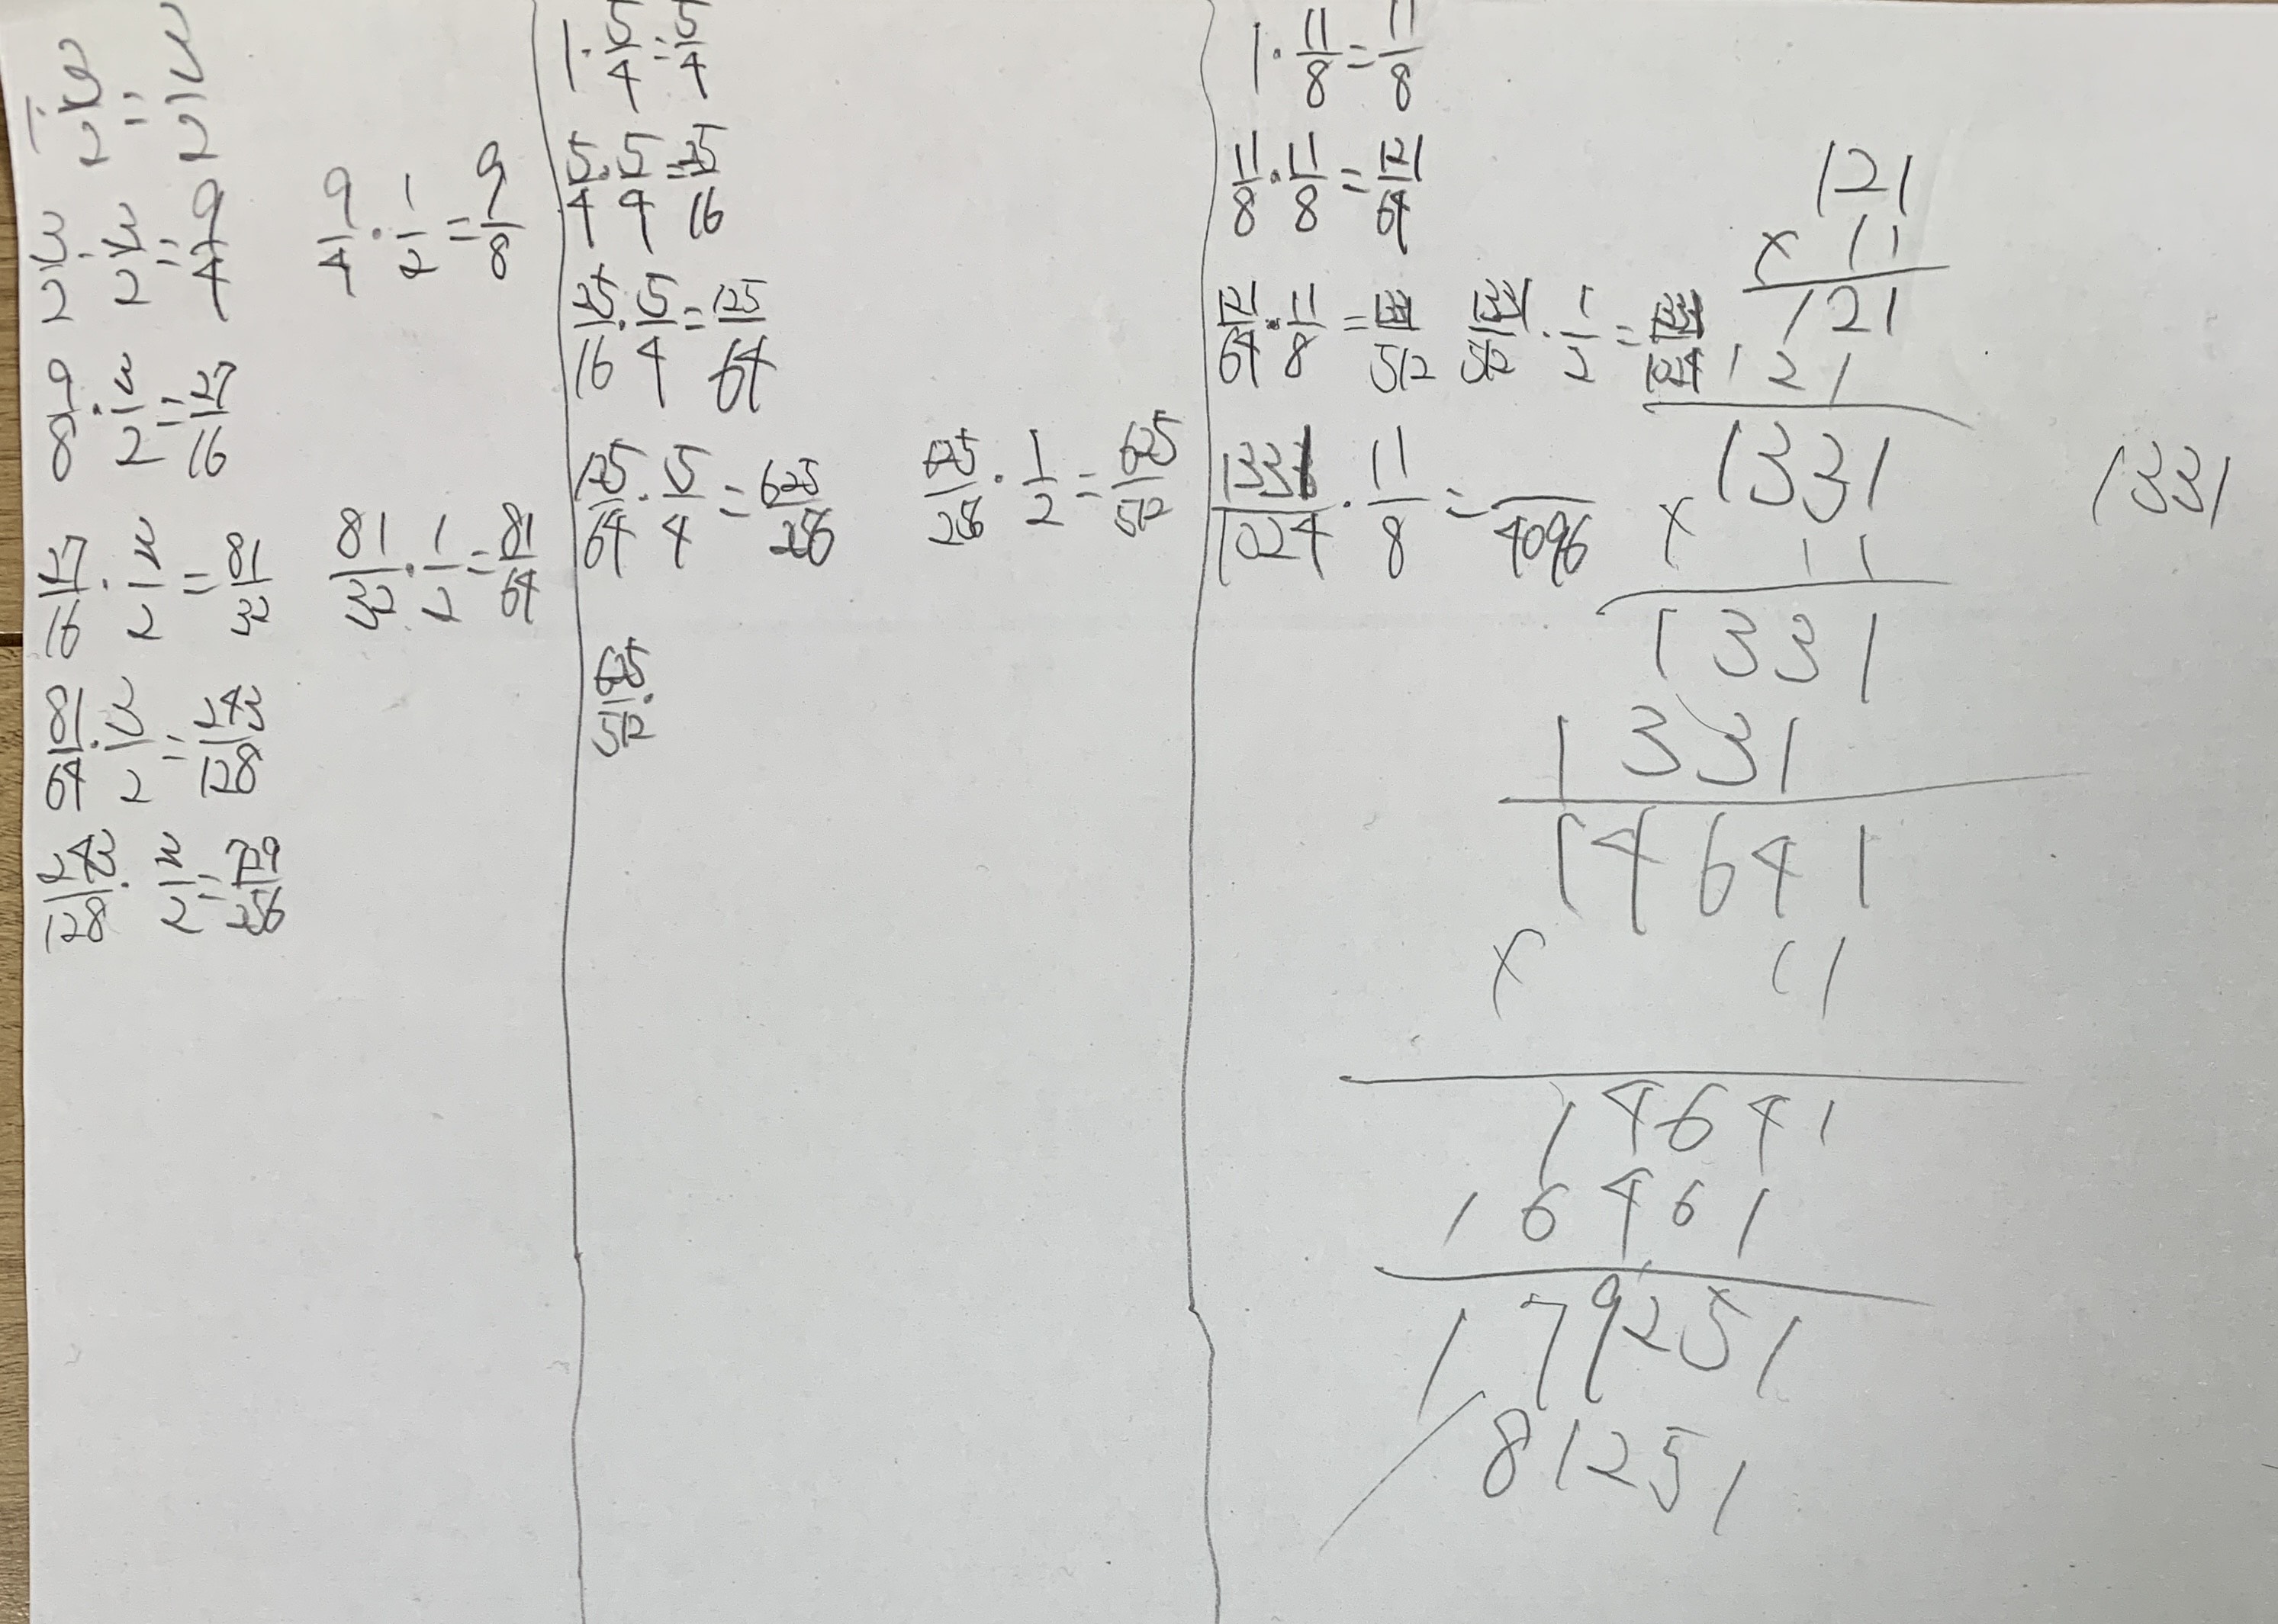 1 · 3/2 = 3/2
3/2 · 3/2 = 9/4
9/4 · 1/2 = 9/8
9/8 · 3/2 = 27/16
27/16 · 3/2 = 81/32
81/32 · 1/2 = 81/64
81/64 · 3/2 = 243/128
243/128 · 3/2 = 729/256
1 · 5/4 = 5/4
5/4 · 5/4 = 25/16
25/16 · 5/4 = 125/64
125/64 · 5/4 = 625/256
625/256 · 1/2 = 625/512
625/512 ·
1 · 11/8 = 11/8
11/8 · 11/8 = 121/64
121/64 · 11/8 = 1331/512
1331/512 · 1/2 = 1331/1024
1331/1024 · 11/8 = /4096
121
× 11
121
121
1331
× 11
1331
1331
14641
× 11
14641
16461
179251
81251
1331